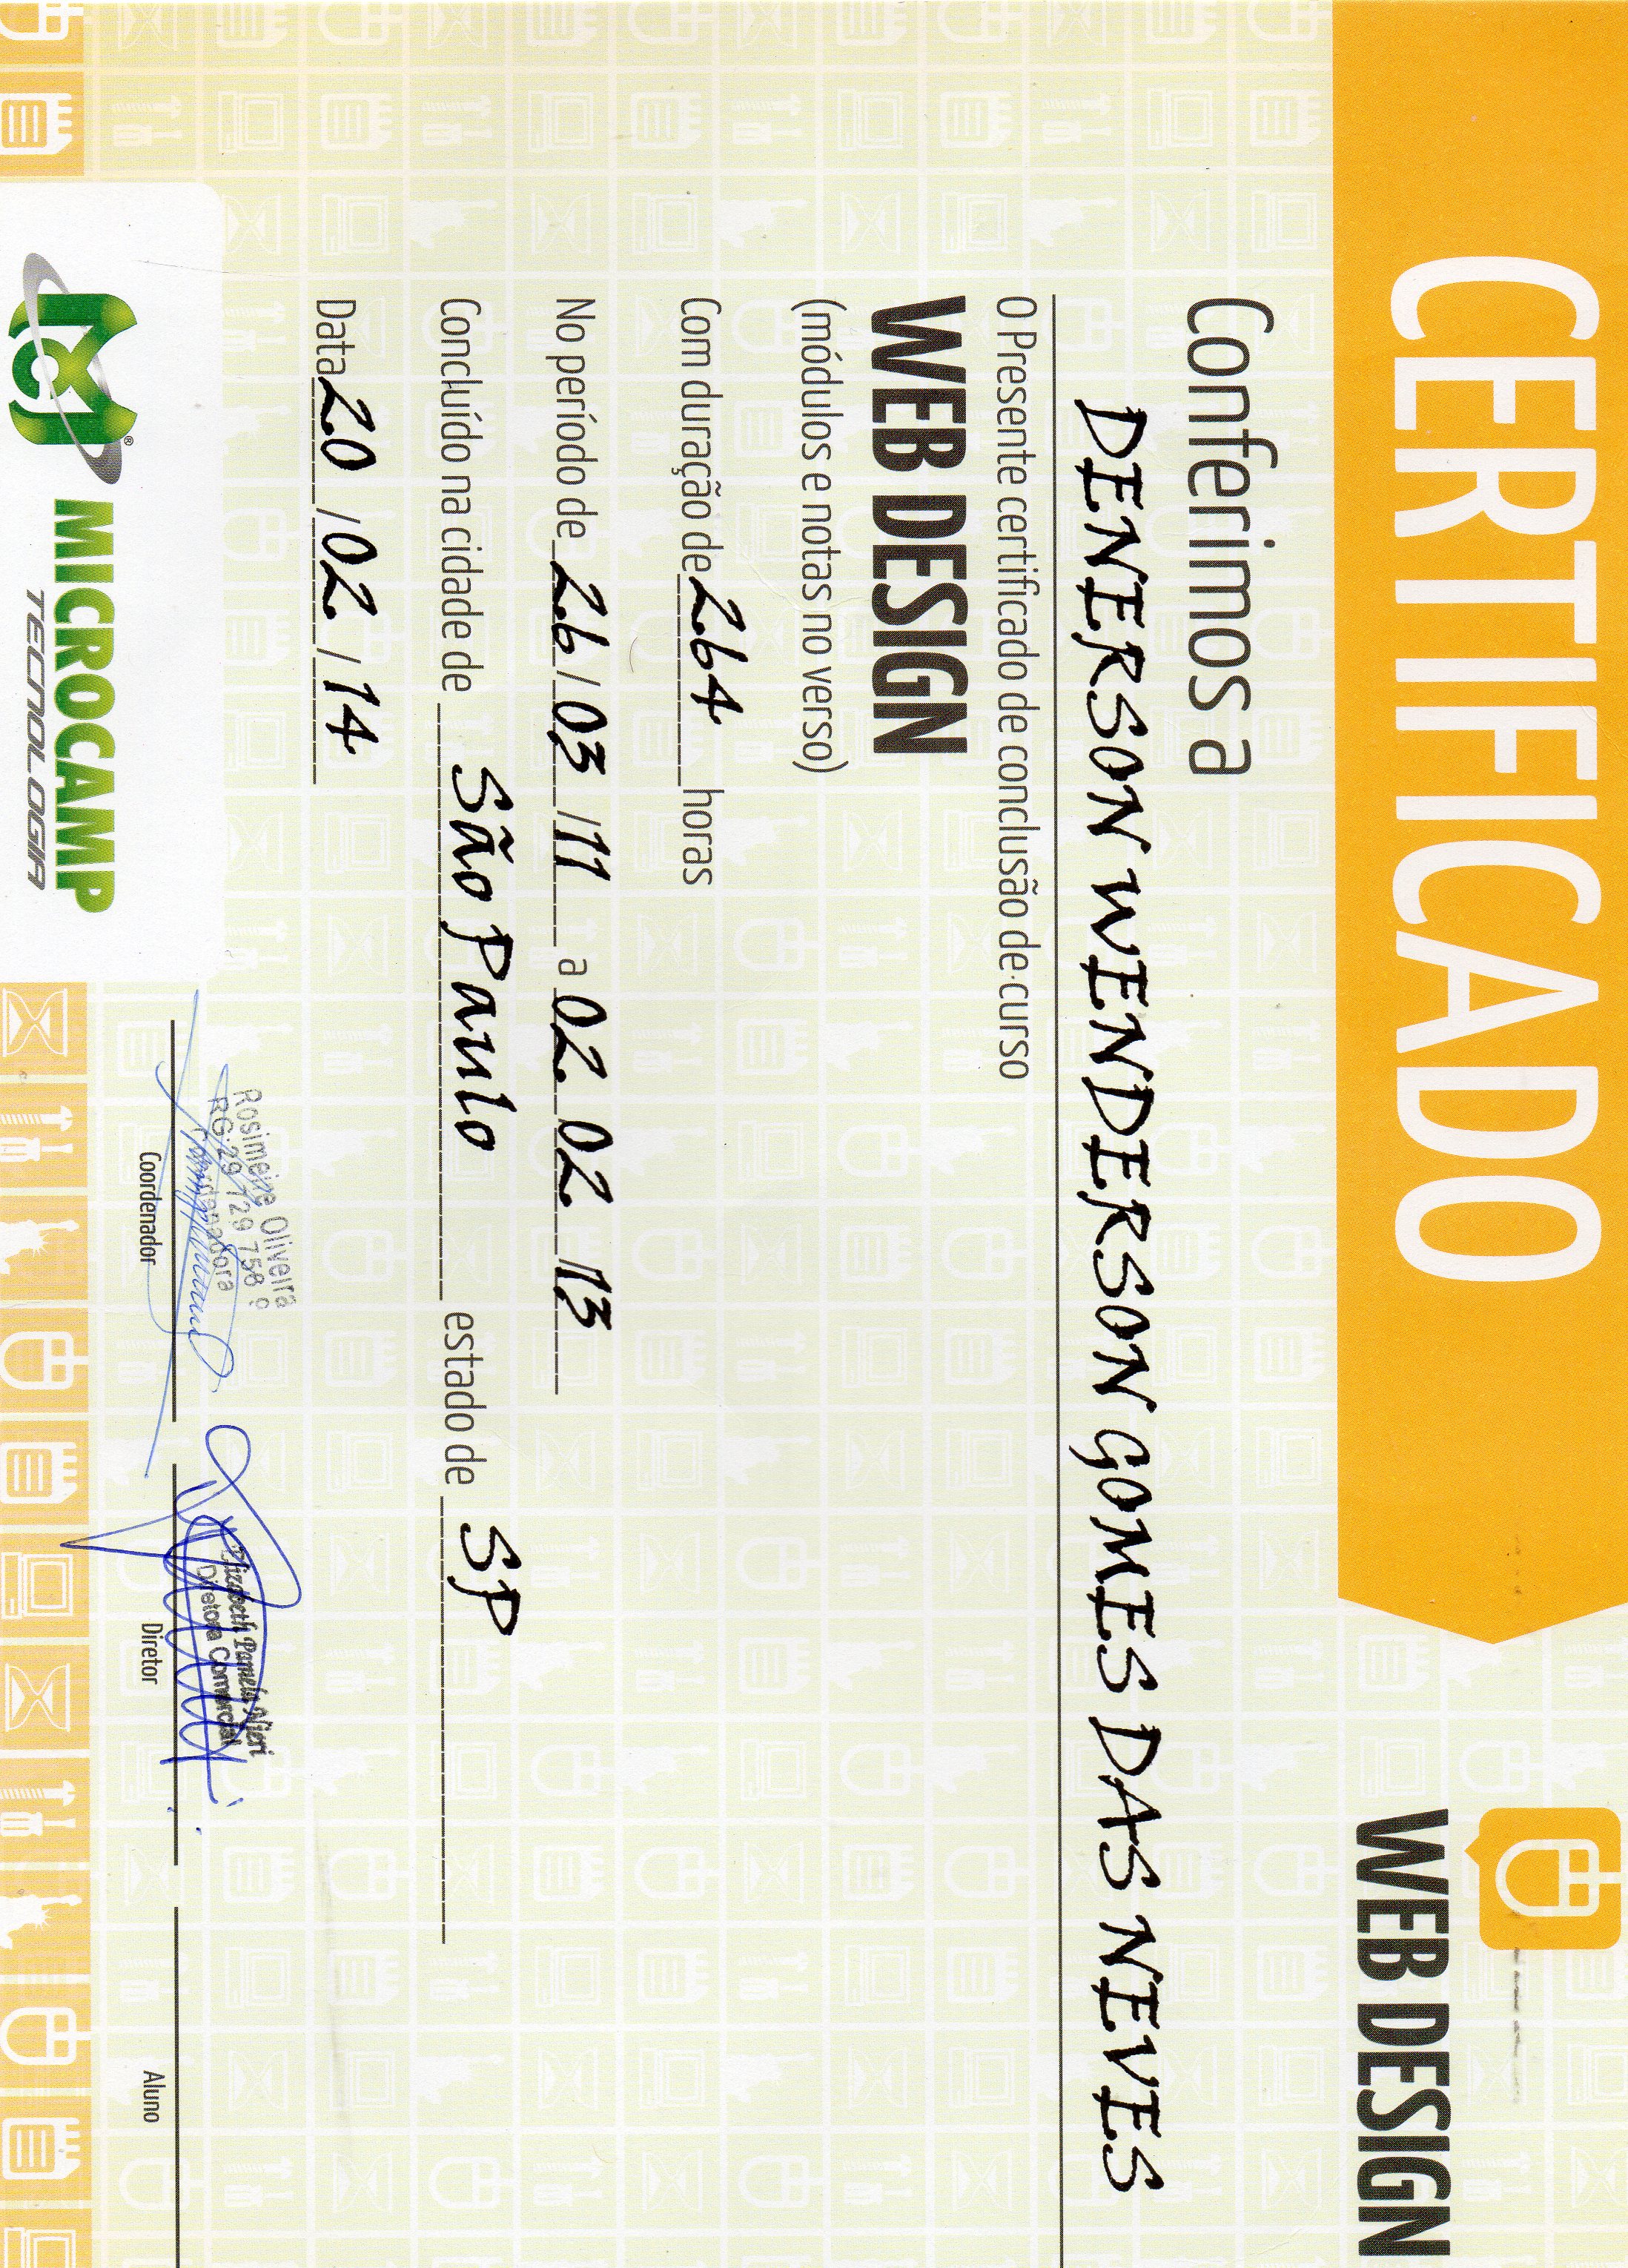 CERTIFICADO
WEB DESIGN
Conferimos a
DENERSON WENDERSON GOMES DAS NEVES
O Presente certificado de conclusão de curso
WEB DESIGN
(módulos e notas no verso)
Com duração de 264 horas
No período de 26/03/11 a 02 02 /13
Concluído na cidade de São Paulo estado de SP
Data 20/02/14
Rosimeire Oliveira
RG 29 729 758 9
Coordenadora
Elizabeth Pamela Nieri
Diretora Comercial
Coordenador
Diretor
Aluno
MICROCAMP
TECNOLOGIA